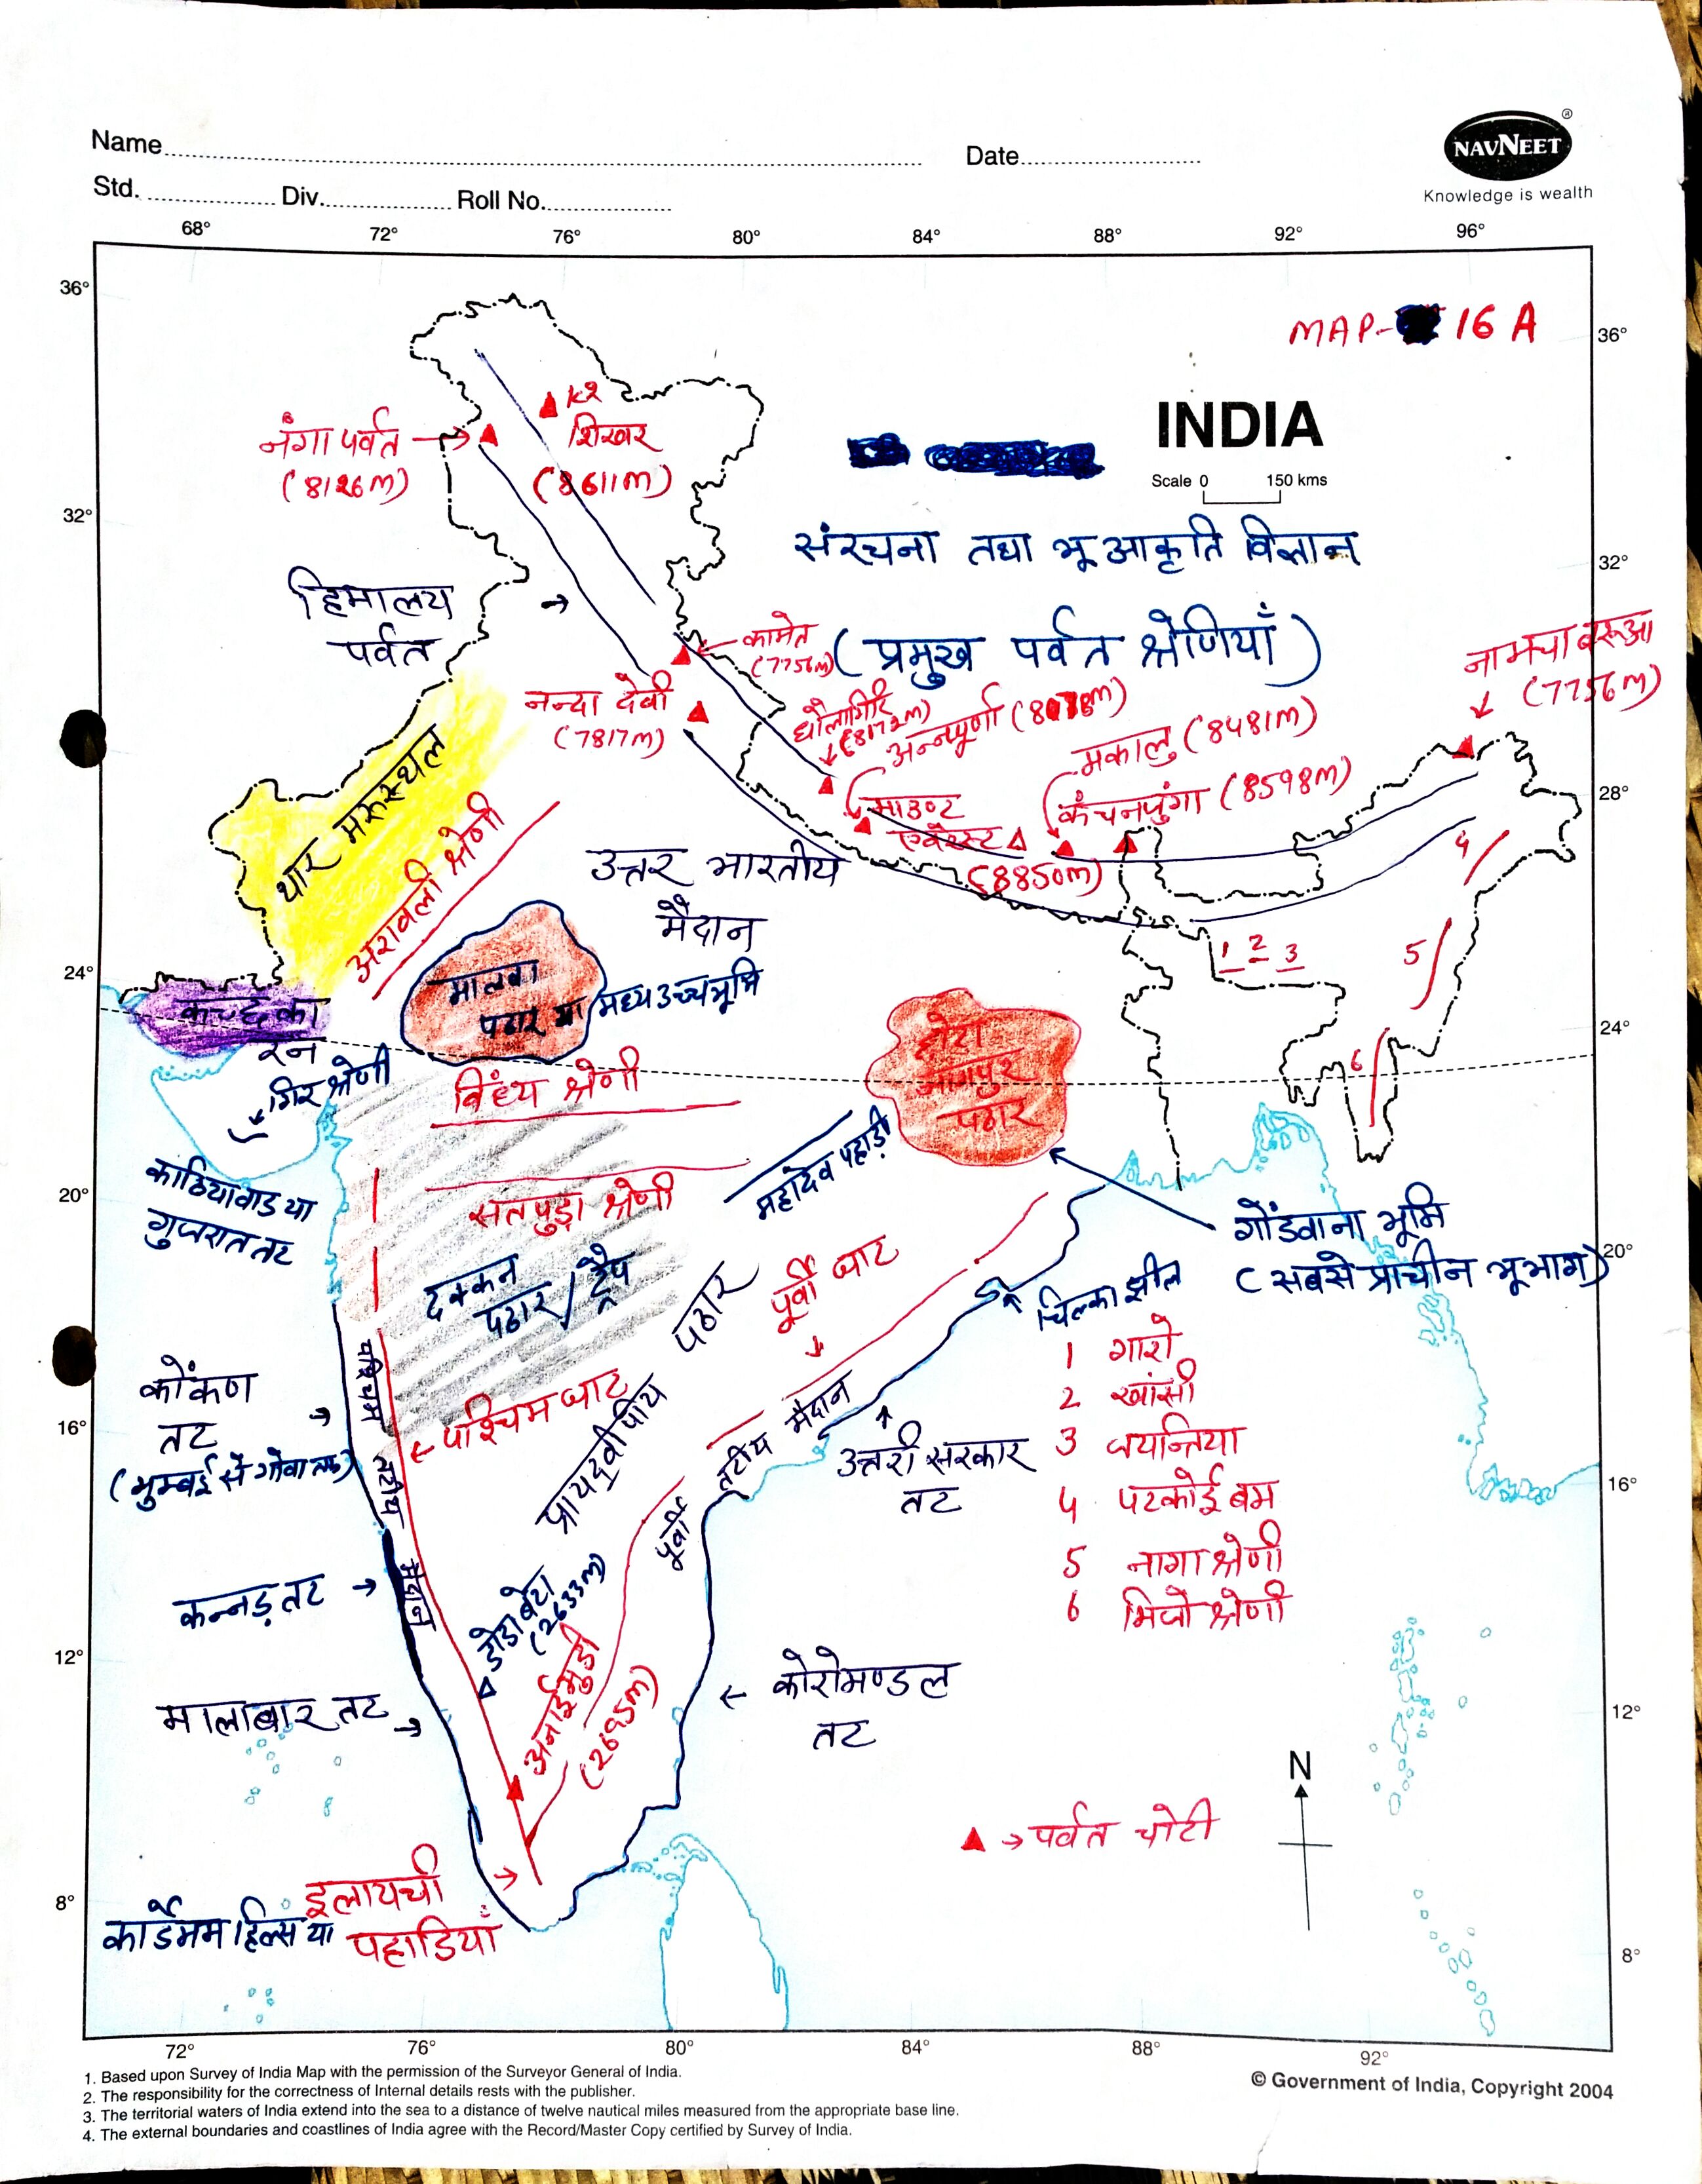 Name
Date
Std.
Div.
Roll No.
NAVNEET
®
Knowledge is wealth
68° 72° 76° 80° 84° 88° 92° 96°
36°
MAP- 16 A
36°
INDIA
Scale 0 150 kms
K2
शिखर
(8611m)
नंगा पर्वत
(8126m)
32°
संरचना तथा भू आकृति विज्ञान
32°
हिमालय
पर्वत
(प्रमुख पर्वत श्रेणियाँ)
कामेत
(7756m)
नामचा बरूआ
(7756m)
नन्दा देवी
(7817m)
धौलागिरि
(8172m)
अन्नपूर्णा (8078m)
मकालु (8481m)
कंचनजुंगा (8598m)
माउण्ट
एवरेस्ट
(8850m)
28°
थार मरुस्थल
अरावली श्रेणी
उत्तर भारतीय
मैदान
4
5
6
1 2 3
24°
मालवा
पठार या मध्य उच्च भूमि
कच्छ का
रन
छोटा
नागपुर
पठार
24°
गिर श्रेणी
विंध्य श्रेणी
महादेव पहाड़ी
काठियावाड या
गुजरात तट
20°
सतपुड़ा श्रेणी
गोंडवाना भूमि
(सबसे प्राचीन भूभाग)
20°
दक्कन
पठार / ट्रैप
पूर्वी घाट
चिल्का झील
प्रायद्वीपीय पठार
1 गारो
2 खांसी
3 जयन्तिया
4 पटकोई बम
5 नागा श्रेणी
6 मिजो श्रेणी
कोंकण
तट
(मुम्बई से गोवा तक)
16°
पश्चिम तटीय मैदान
पश्चिम घाट
पूर्वी तटीय मैदान
उत्तरी सरकार
तट
16°
कन्नड़ तट
डोडा बेटा
(2633m)
अनाईमुडी
(2695m)
12°
मालाबार तट
कोरोमण्डल
तट
12°
N
पर्वत चोटी
8°
इलायची
पहाडियाँ
कार्डेमम हिल्स या
8°
72° 76° 80° 84° 88° 92°
1. Based upon Survey of India Map with the permission of the Surveyor General of India.
2. The responsibility for the correctness of Internal details rests with the publisher.
3. The territorial waters of India extend into the sea to a distance of twelve nautical miles measured from the appropriate base line.
4. The external boundaries and coastlines of India agree with the Record/Master Copy certified by Survey of India.
© Government of India, Copyright 2004